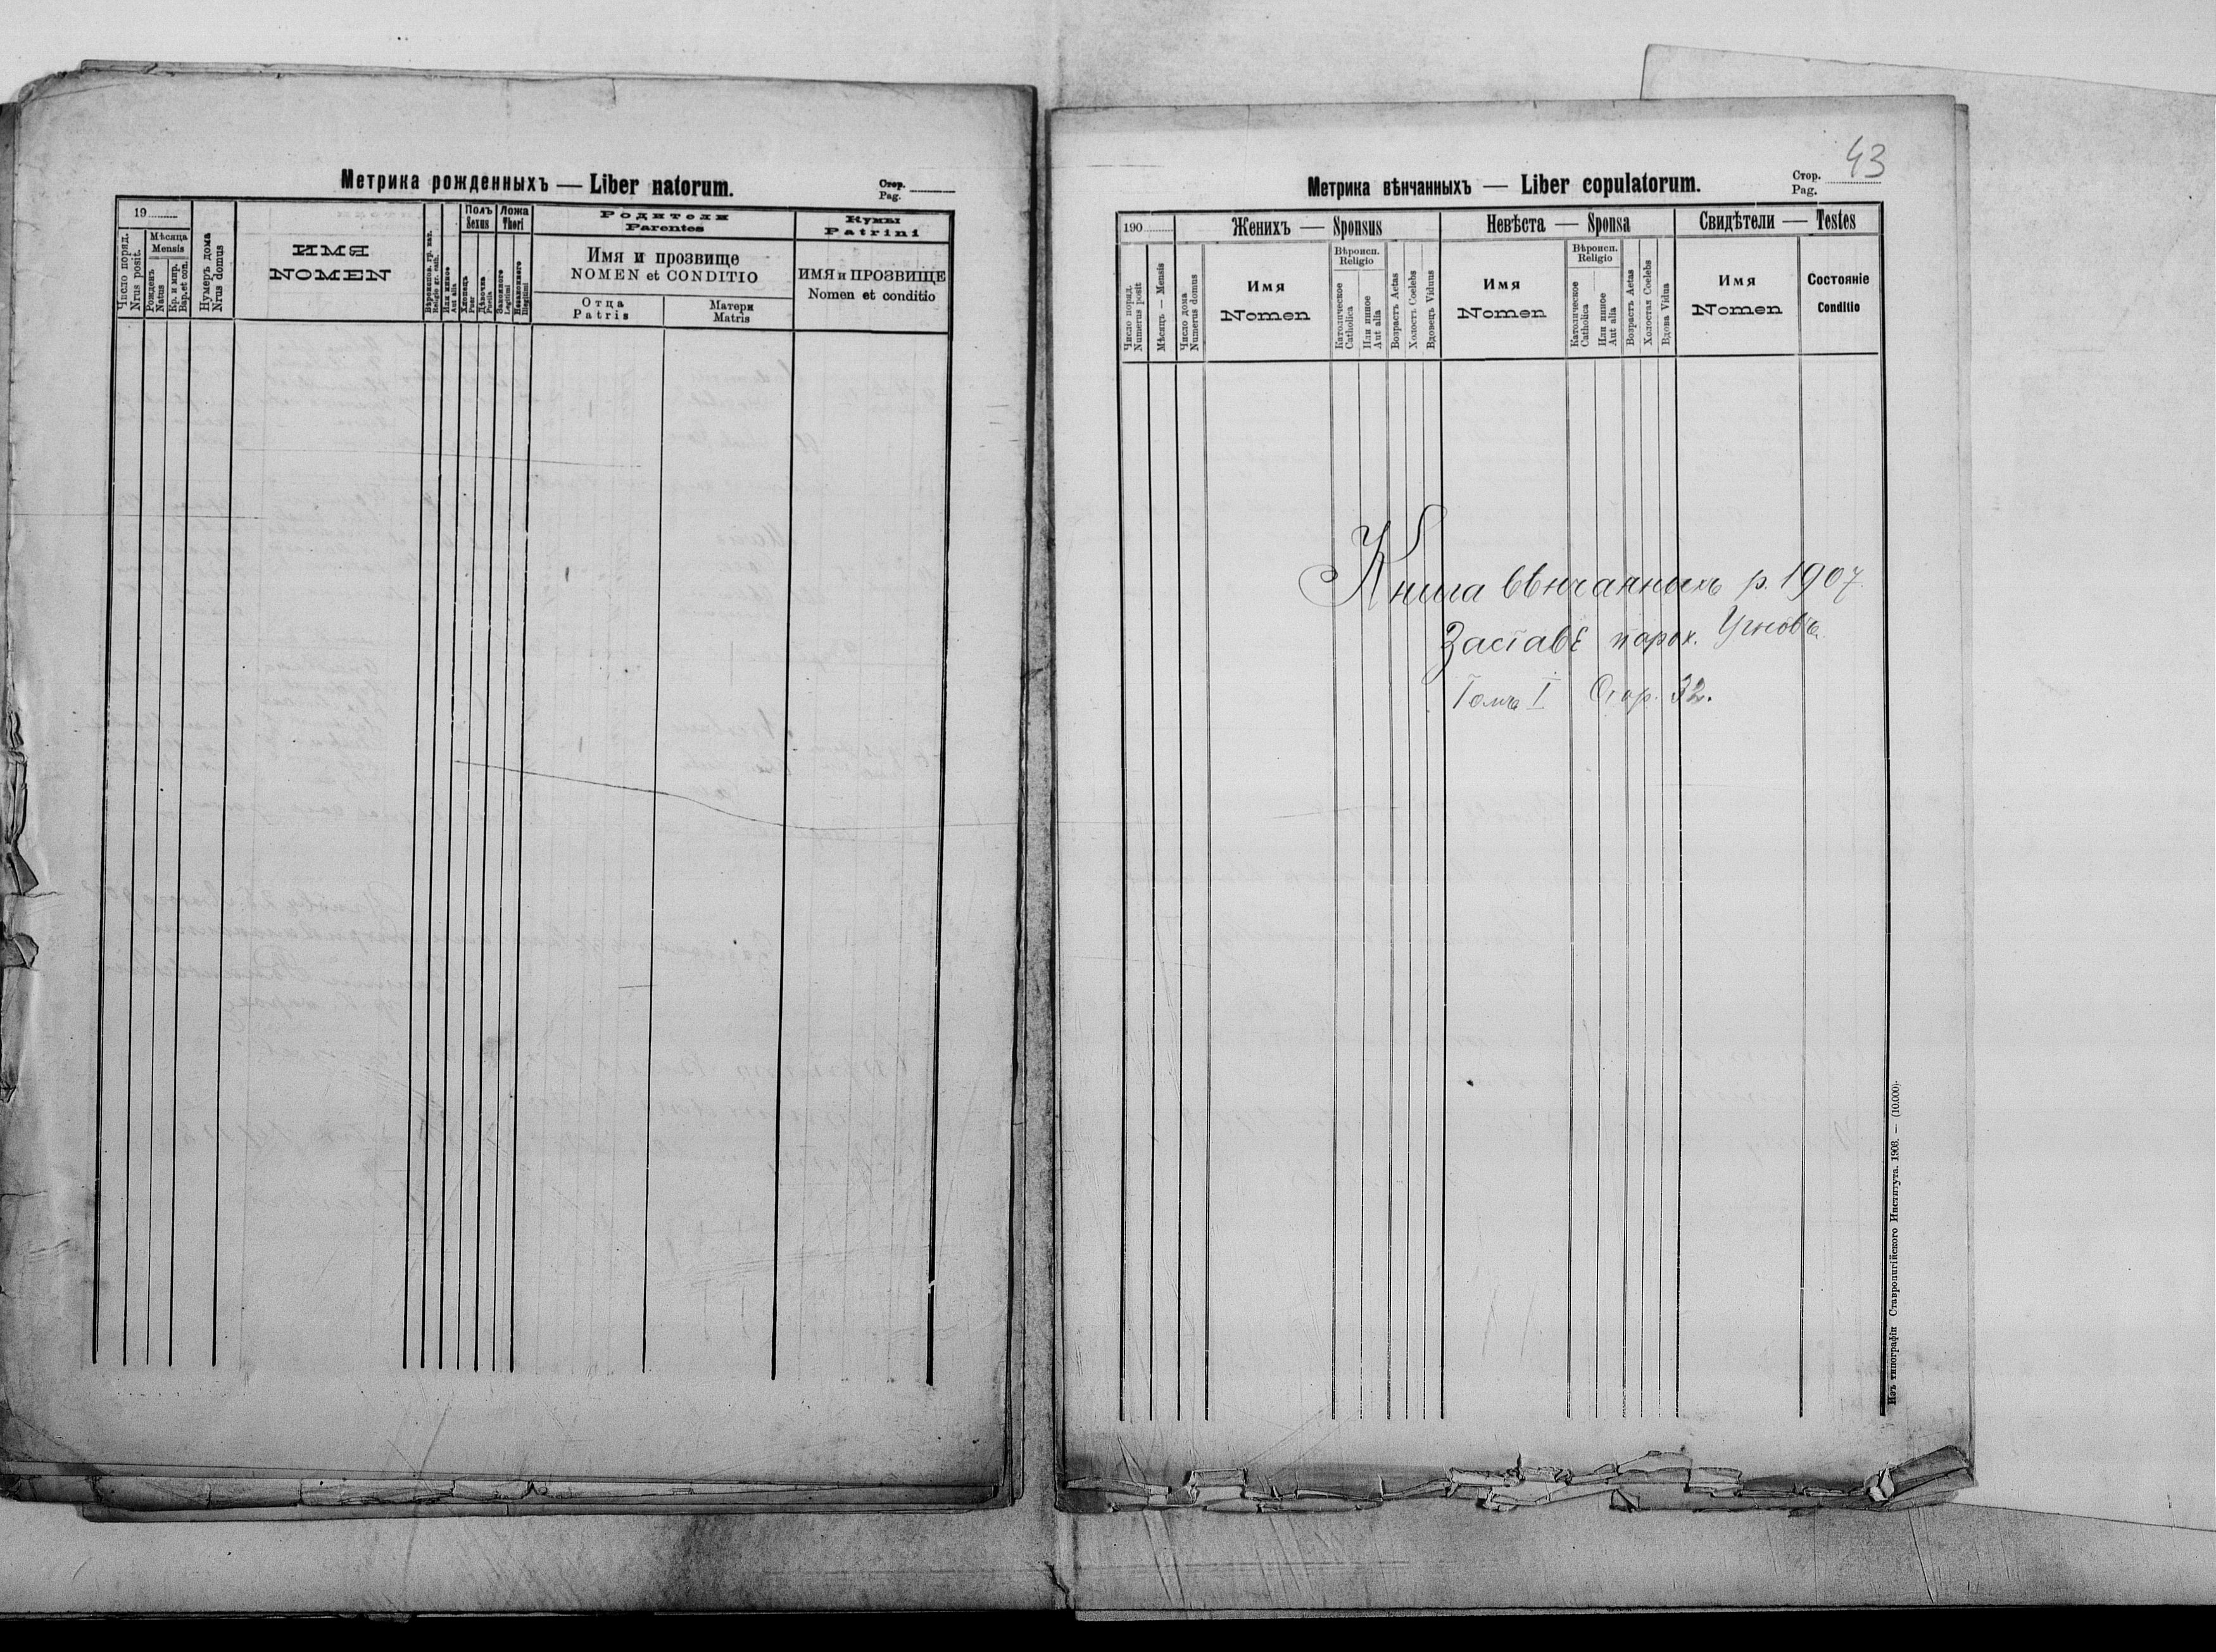 Метрика рожденныхъ — Liber natorum.
Стор.
Pag.
19
Число поряд.
Nrus posit.
Мѣсяца
Mensis
Рожденъ
Natus
Кр. и мир.
Bap. et con.
Нумеръ дома
Nrus domus
ИМЯ
NOMEN
Или инное
Aut alia
Полъ
Sexus
Хлопецъ
Puer
Дѣвчина
Puella
Ложа
Thori
Законного
Legitimi
Незаконного
Illegitimi
Родители
Parentes
Имя и прозвище
NOMEN et CONDITIO
Отца
Patris
Матери
Matris
Кумы
Patrini
ИМЯ и ПРОЗВИЩЕ
Nomen et conditio
43
Метрика вѣнчанныхъ — Liber copulatorum.
Стор.
Pag.
190
Число поряд.
Numerus posit
Мѣсяцъ — Mensis
Число дома
Numerus domus
Женихъ — Sponsus
Имя
Nomen
Вѣроисп.
Religio
Католическое
Catholica
Или инное
Aut alia
Возрастъ Aetas
Холостъ Coelebs
Вдовецъ Viduus
Невѣста — Sponsa
Имя
Nomen
Вѣроисп.
Religio
Католическое
Catholica
Или инное
Aut alia
Возрастъ Aetas
Холостая Coelebs
Вдова Vidua
Свидѣтели — Testes
Имя
Nomen
Состояніе
Conditio
Книга вѣнчанныхъ р. 1907.
Заставє парох. Угновъ
Томъ I Стор. 32.
Изъ типографіи Ставропигійского Института. 1908. — (10.000).